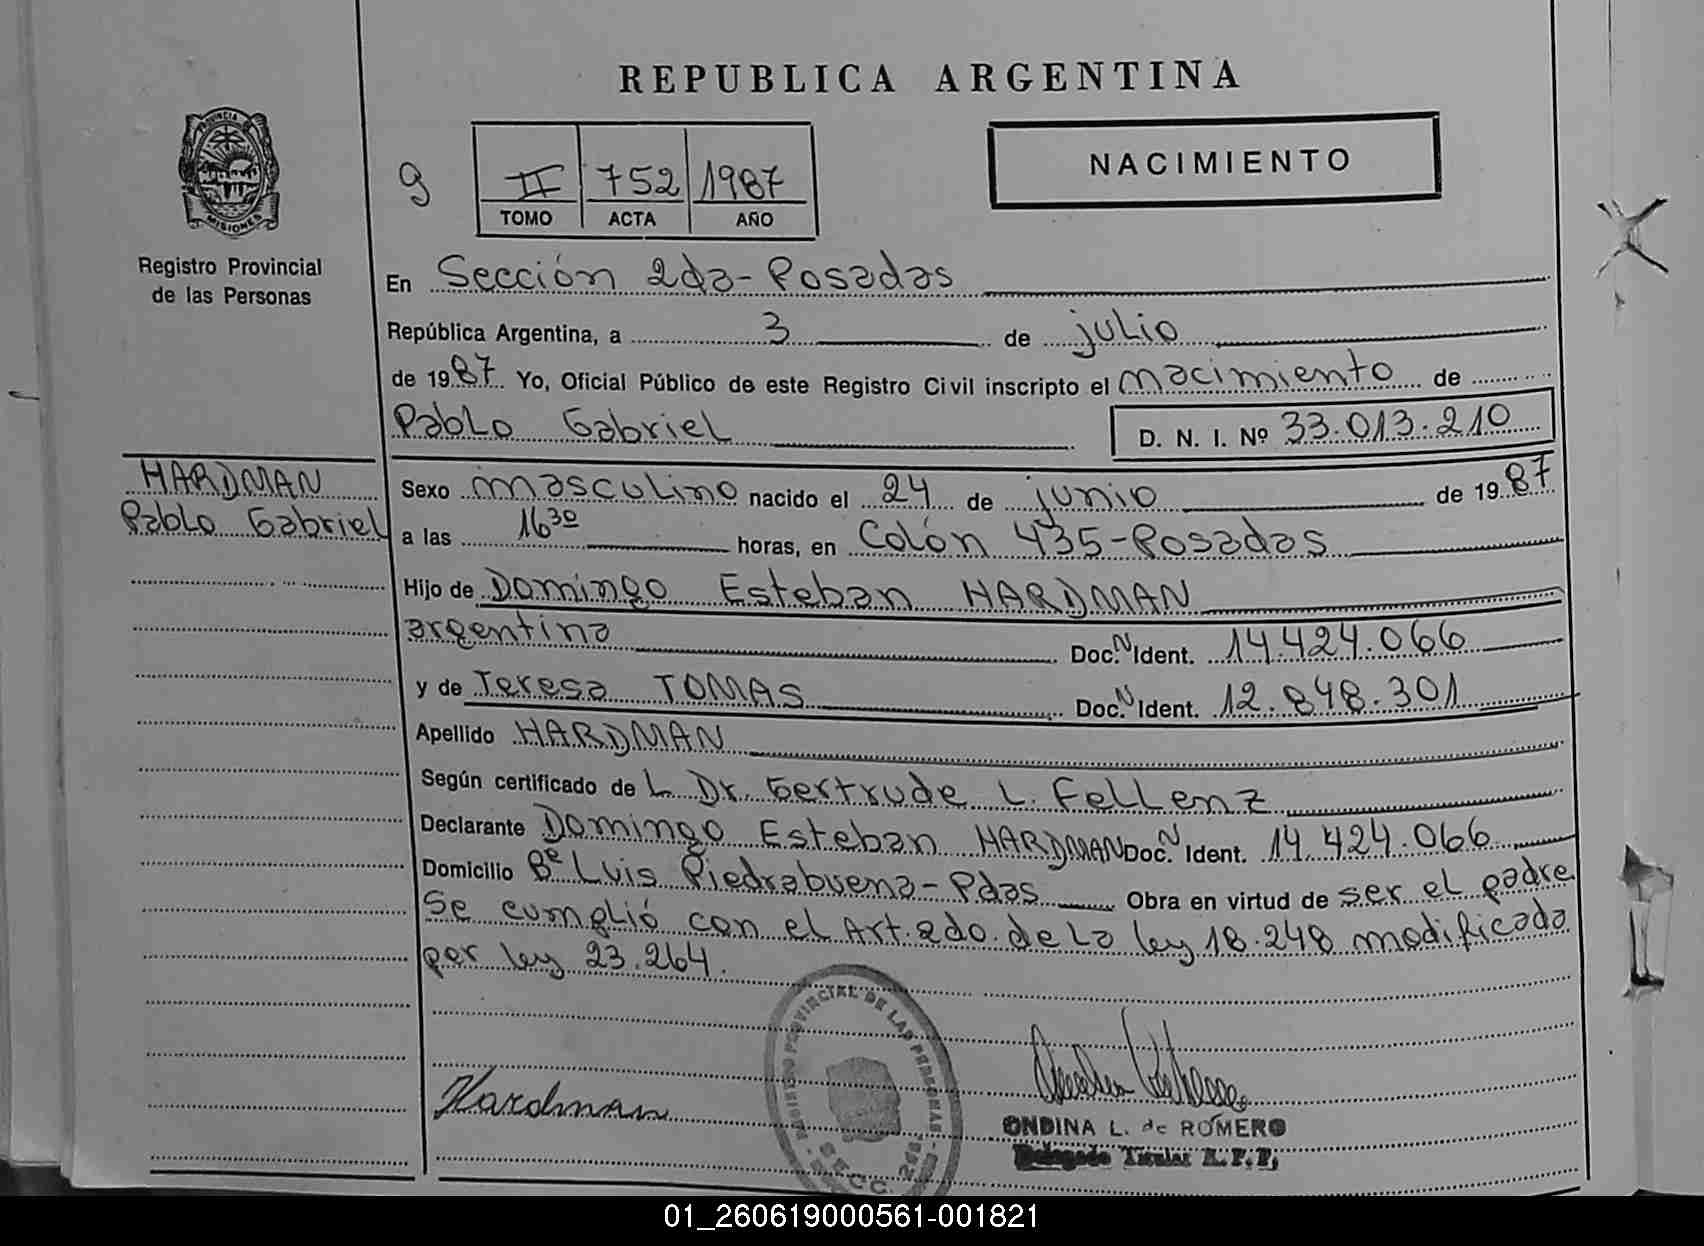 REPUBLICA ARGENTINA
PROVINCIA
MISIONES
Registro Provincial
de las Personas
g
II 752 1987
TOMO ACTA AÑO
NACIMIENTO
En Sección 2da-Posadas
República Argentina, a 3 de julio
de 1987 Yo, Oficial Público de este Registro Civil inscripto el nacimiento de
Pablo Gabriel D. N. I. Nº 33.013.210
HARDMAN
Pablo Gabriel
Sexo masculino nacido el 24 de junio de 1987
a las 16 30 horas, en Colón 435-Posadas
Hijo de Domingo Esteban HARDMAN
argentina Doc. N Ident. 14.424.066
y de Teresa TOMAS Doc. N Ident. 12.848.301
Apellido HARDMAN
Según certificado de L Dr. Gertrude L. Fellenz
Declarante Domingo Esteban HARDMAN Doc. N Ident. 14.424.066
Domicilio Bº Luis Piedrabuena-Pdas Obra en virtud de ser el padre
Se cumplió con el Art. 2do de la ley 18.248 modificada
por ley 23.264.
REGISTRO PROVINCIAL DE LAS PERSONAS
SECC. 2da.
Hardman
ONDINA L. de ROMERO
Delegado Titular R. P. P.
01_260619000561-001821